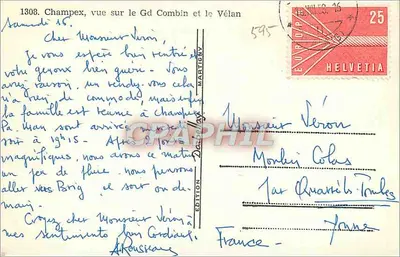 1308. Champex, vue sur le Gd Combin et le Vélan
Samedi 16,
Cher Monsieur Véron,
Je vous espère bien rentré et
votre genou bien guéri. Vous
avez raison, un rendez-vous cela
n'a rien de commode, mais enfin
la famille est réunie à Champex
Pa, man sont arrivés
soir à 19h15. Après
magnifiques, nous avons ce matin
un peu de pluie. nous pensons
aller vers Brig, et sont
demain.
Croyez cher Monsieur Véron à
mes sentiments bien Cordiaux.
ARousseau
EDITION
MARTIGNY
EUROPA
25
HELVETIA
595-
Monsieur Véron
Moulin Colas
par
Yonne
France-
CPAPHIL.COM